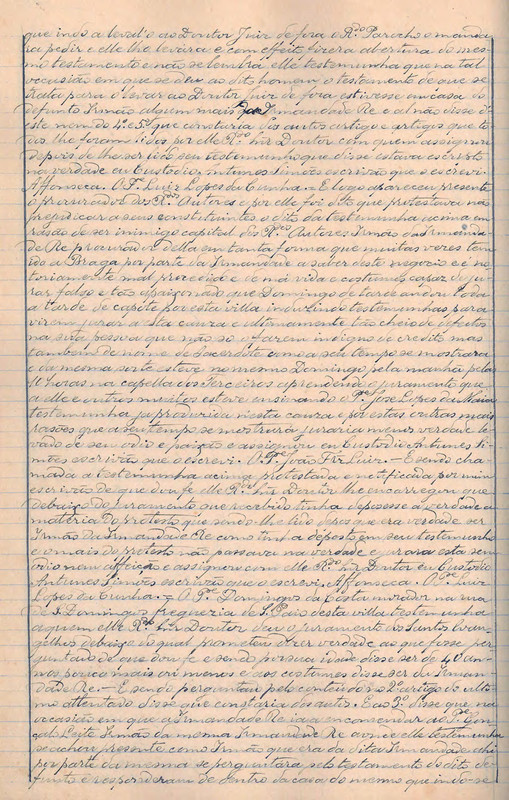 que indo a leval-o ao Doutor Juiz de fora o R.do Parocho o manda-
ra pedir e elle lhe levára e com effeito fizera abertura do mes-
mo testamento e não se lembra elle testemunha que na tal
occasião em que se deu ao dito homem o testamento de que se
trata para o levar ao Doutor Juiz de fora estivesse em casa do
defunto Irmão algum mais da Irmandade Re e al não disse d'
este nem do 4.º 5.º que constaria dos autos artigo e artigos que to-
dos lhe foram lidos por elle R.do Sñr Doutor com quem assignou
depois de lhe ser lido seu testemunho que disse estava escripto
na verdade eu Custodio Antunes Simões escrivão que o escrevi.
Affonseca. O P.e Luiz Lopes da Cunha. E logo appareceu presente
o procurador dos R.dos Autores e por elle foi dito que protestava não
prejudicar a seus constituintes o dito da testemunha acima em
rasão de ser inimigo capital dos R.dos Autores Irmão da Irmanda-
de Re procurador della em tanta forma que muitas vezes tem
ido a Braga por parte da Irmandade a saber deste negocio e é no-
toriamente mal procedido e de má vida e costumes capaz de ju-
rar falso e tão apaixonado que Domingo de tarde andou toda
a tarde de capote por esta villa induzindo testemunhas para
virem jurar a esta causa e ultimamente tão cheio de defeitos
na sua pessoa que não só o fazem indigno de credito mas
tambem do nome de Sacerdote como a seu tempo se mostrara
e da mesma sorte esteve no mesmo Domingo pela manhã pelas
10 horas na capella dos Terceiros aprendendo o juramento que
a elle e outros muitos esteve ensinando o P.e José Lopes da Maia
testemunha ja produzida nesta causa e por estas outras mais
rasões que a seu tempo se mostrará juraria menos verdade le-
vado de seu odio e paixão e assignou eu Custodio Antunes Si-
mões escrivão que o escrevi. O P.e João Frz Luiz. — E sendo cha-
mada a testemunha acima protestada e notificada por mim
escrivão de que dou fe elle R.do Sñr Doutor lhe encarregou que
debaixo do juramento que recebido tinha depozesse a verdade a
materia do protesto que sendo-lhe lido depos que era verdade ser
Irmão da Irmandade Re como tinha deposto em seu testemunho
e o mais do protesto não passava na verdade e jurara esta sem
odio nem affeição e assignou com elle R.do Sñr Doutor eu Custodio
Antunes Simões escrivão que o escrevi. Affonseca. O P.e Luiz
Lopes da Cunha. O P.e Domingos da Costa morador na rua
de S. Domingos freguezia de S. Paio desta villa testemunha
a quem elle R.do Sñr Doutor deu o juramento dos Santos Evan-
gelhos debaixo do qual prometteu dizer verdade ao que fosse per-
guntado de que dou fe e sendo por sua idade disse ser de 40 an-
nos pouco mais ou menos e aos costumes disse ser da Irman-
dade Re. — E sendo perguntado pelo conteúdo no 2.º artigo do ulti-
mo attentado disse que constaria dos autos. E ao 3.º disse que na
occasião em que a Irmandade Re ia a encomendar ao P.e Gon-
çalo Leite Irmão da mesma Irmandade Re aonde elle testemunha
se achou presente como Irmão que era da dita Irmandade ahi
por parte da mesma se perguntara pelo testamento do dito de-
funto e responderam de dentro da casa do mesmo que indo-se